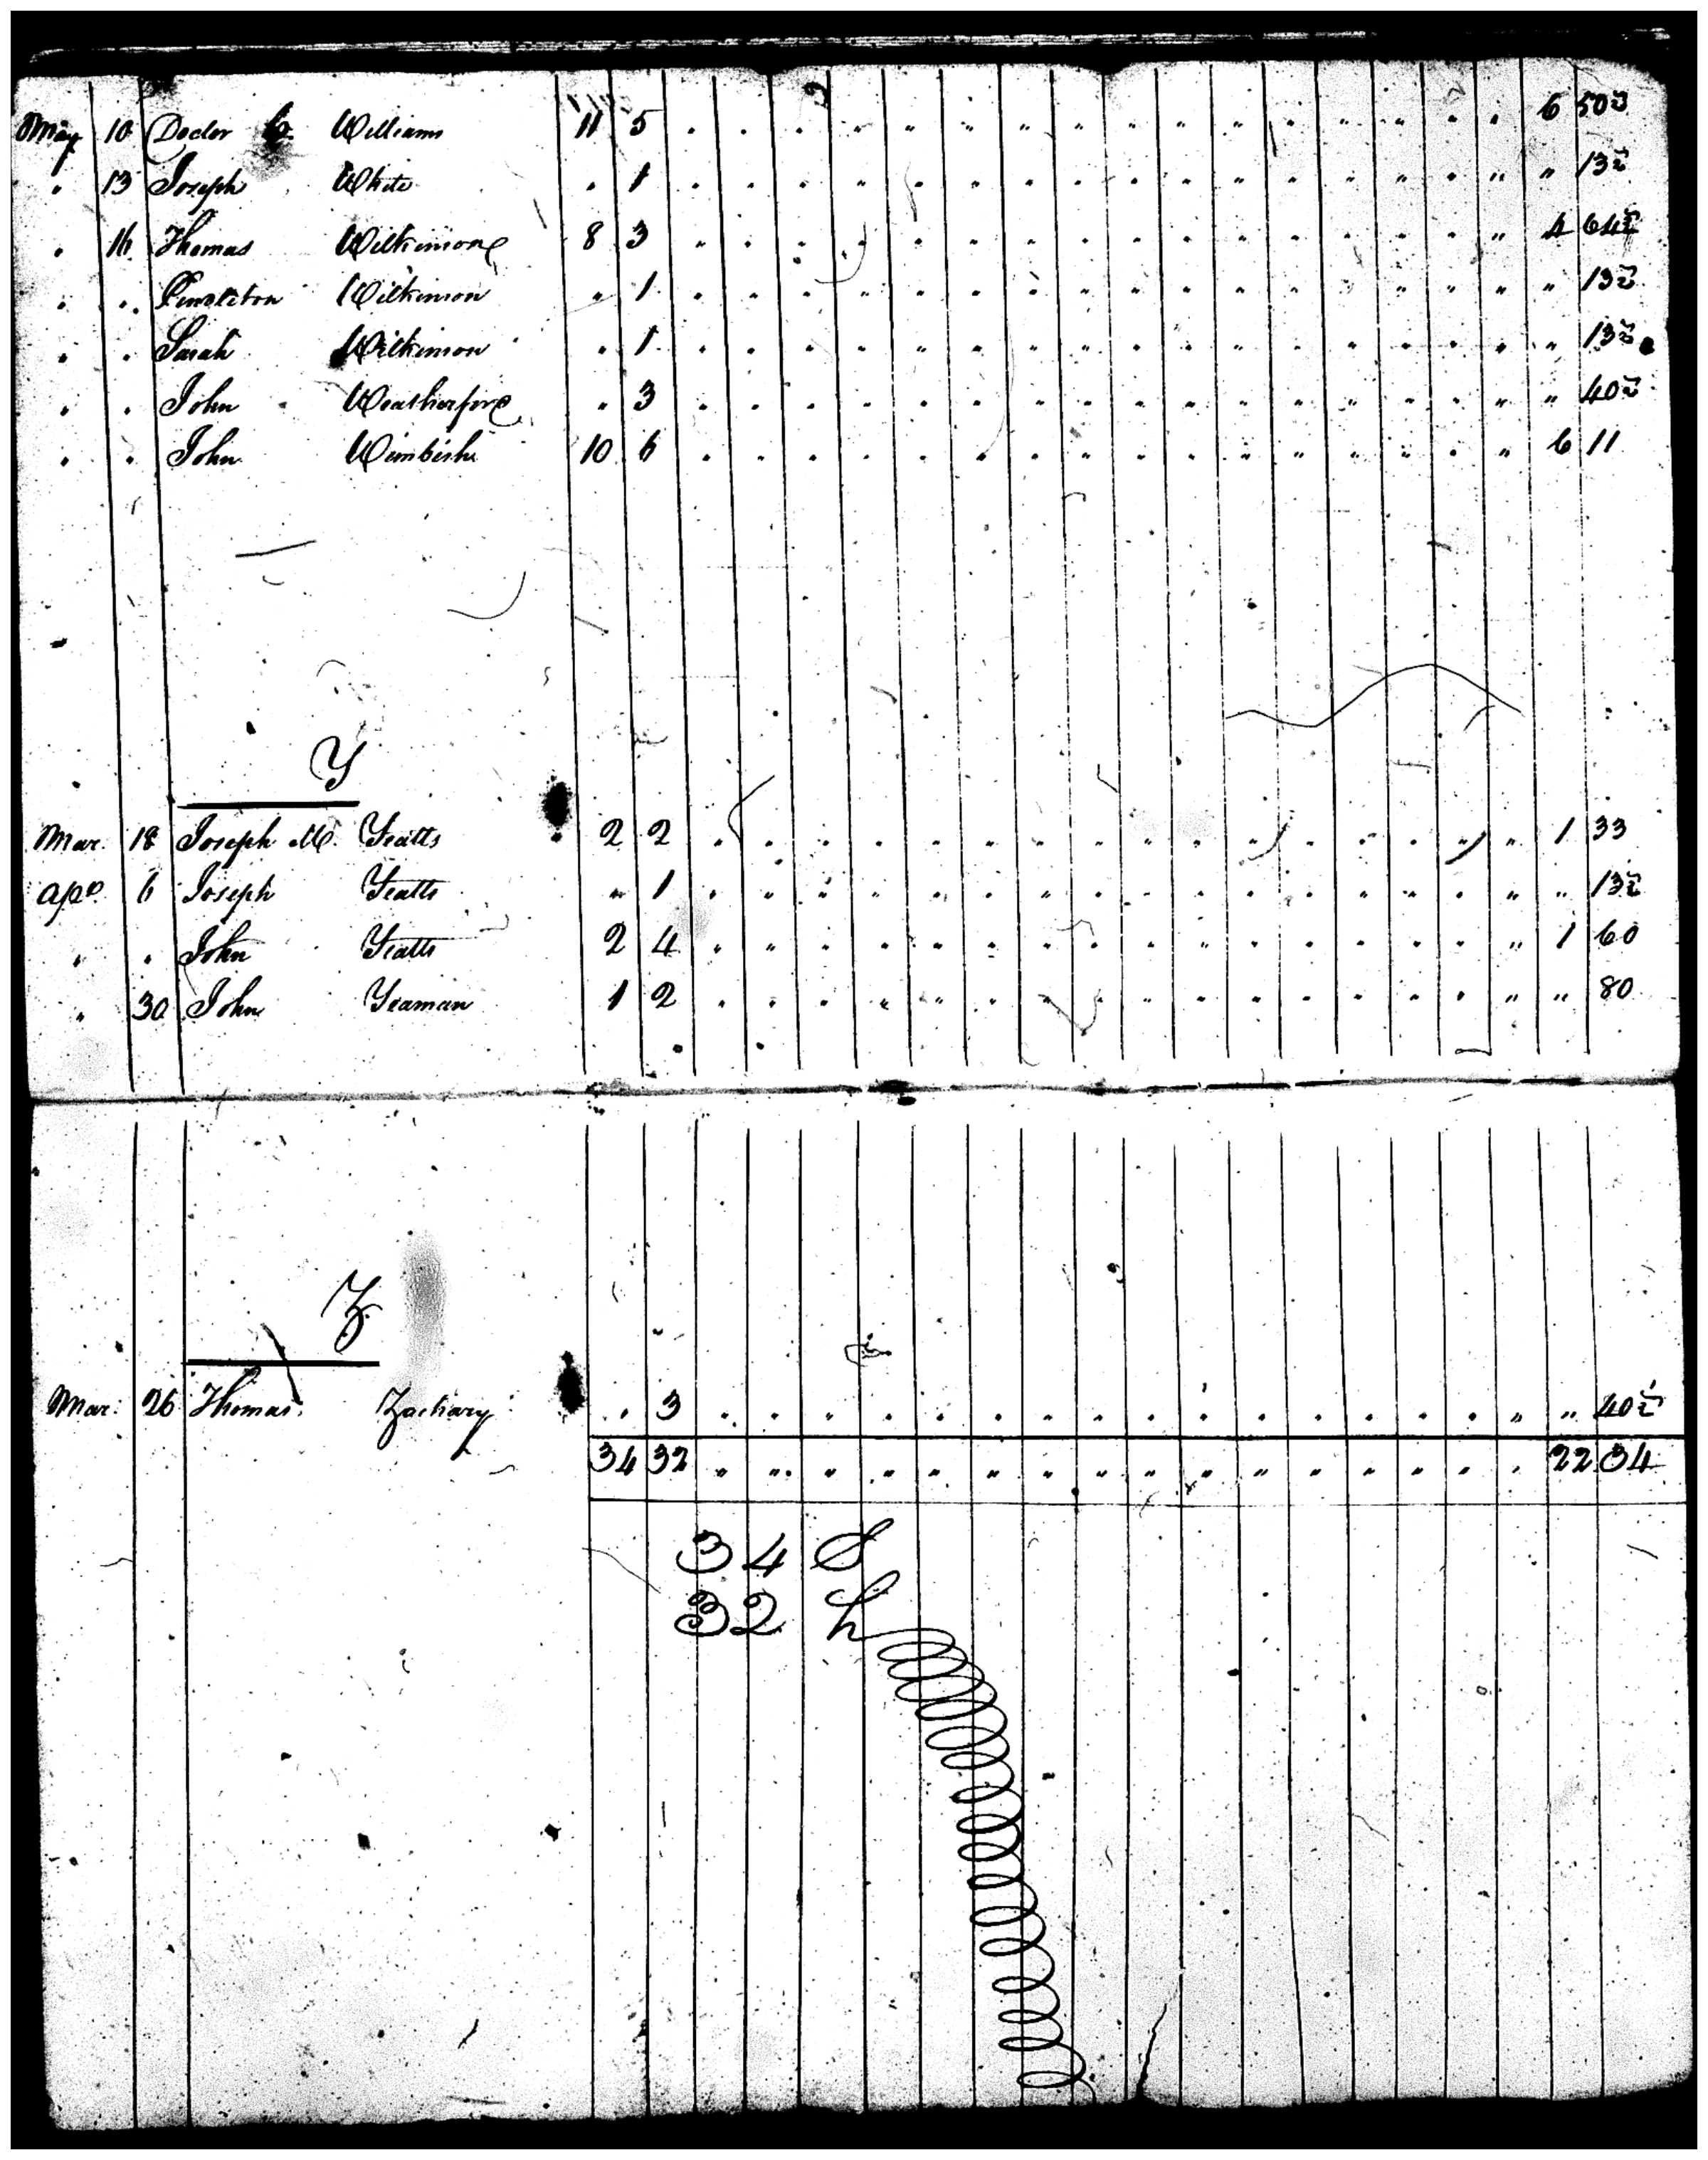 May 10 Doctor C. Williams 11 5 . . . " " " " " " " " " " " " . . 6 50½
" 13 Joseph White . 1 . . . " " " " " " " " " " " " . " " 13½
" 16 Thomas Wilkinson 8 3 " " " " " " " " " " " " " " " " 4 64½
" " Pendleton Wilkinson " 1 . " " " " " " " " " " " " " " " " " 13½
" " Sarah Wilkinson " 1 . . " " " " " " " " " " " " " " " " 13½
" " John Weatherford " 3 . . . " " " " " " " " " " " " " " " 40½
" " John Wimbish 10 6 . . . . . . . . " " " " " " . " 6 11
Y
Mar. 18 Joseph M. Yeatts 2 2 . . . . " " " " " " " " " . . " " 1 33
apl 6 Joseph Yeatts " 1 . " " " " . . " " . " " . . " " " " " 13½
" . John Yeatts 2 4 . " . . . . . . . " " . . . . " 1 60
" 30 John Yeaman 1 2 . . . " " . . . " . . . . . " " " 80
Z
Mar. 26 Thomas Zachary . 3 . . . . . . . . . . . . . . . " " 40½
34 32 " " " " " " " " " " " " " " " . 22 34
34 S
32 h